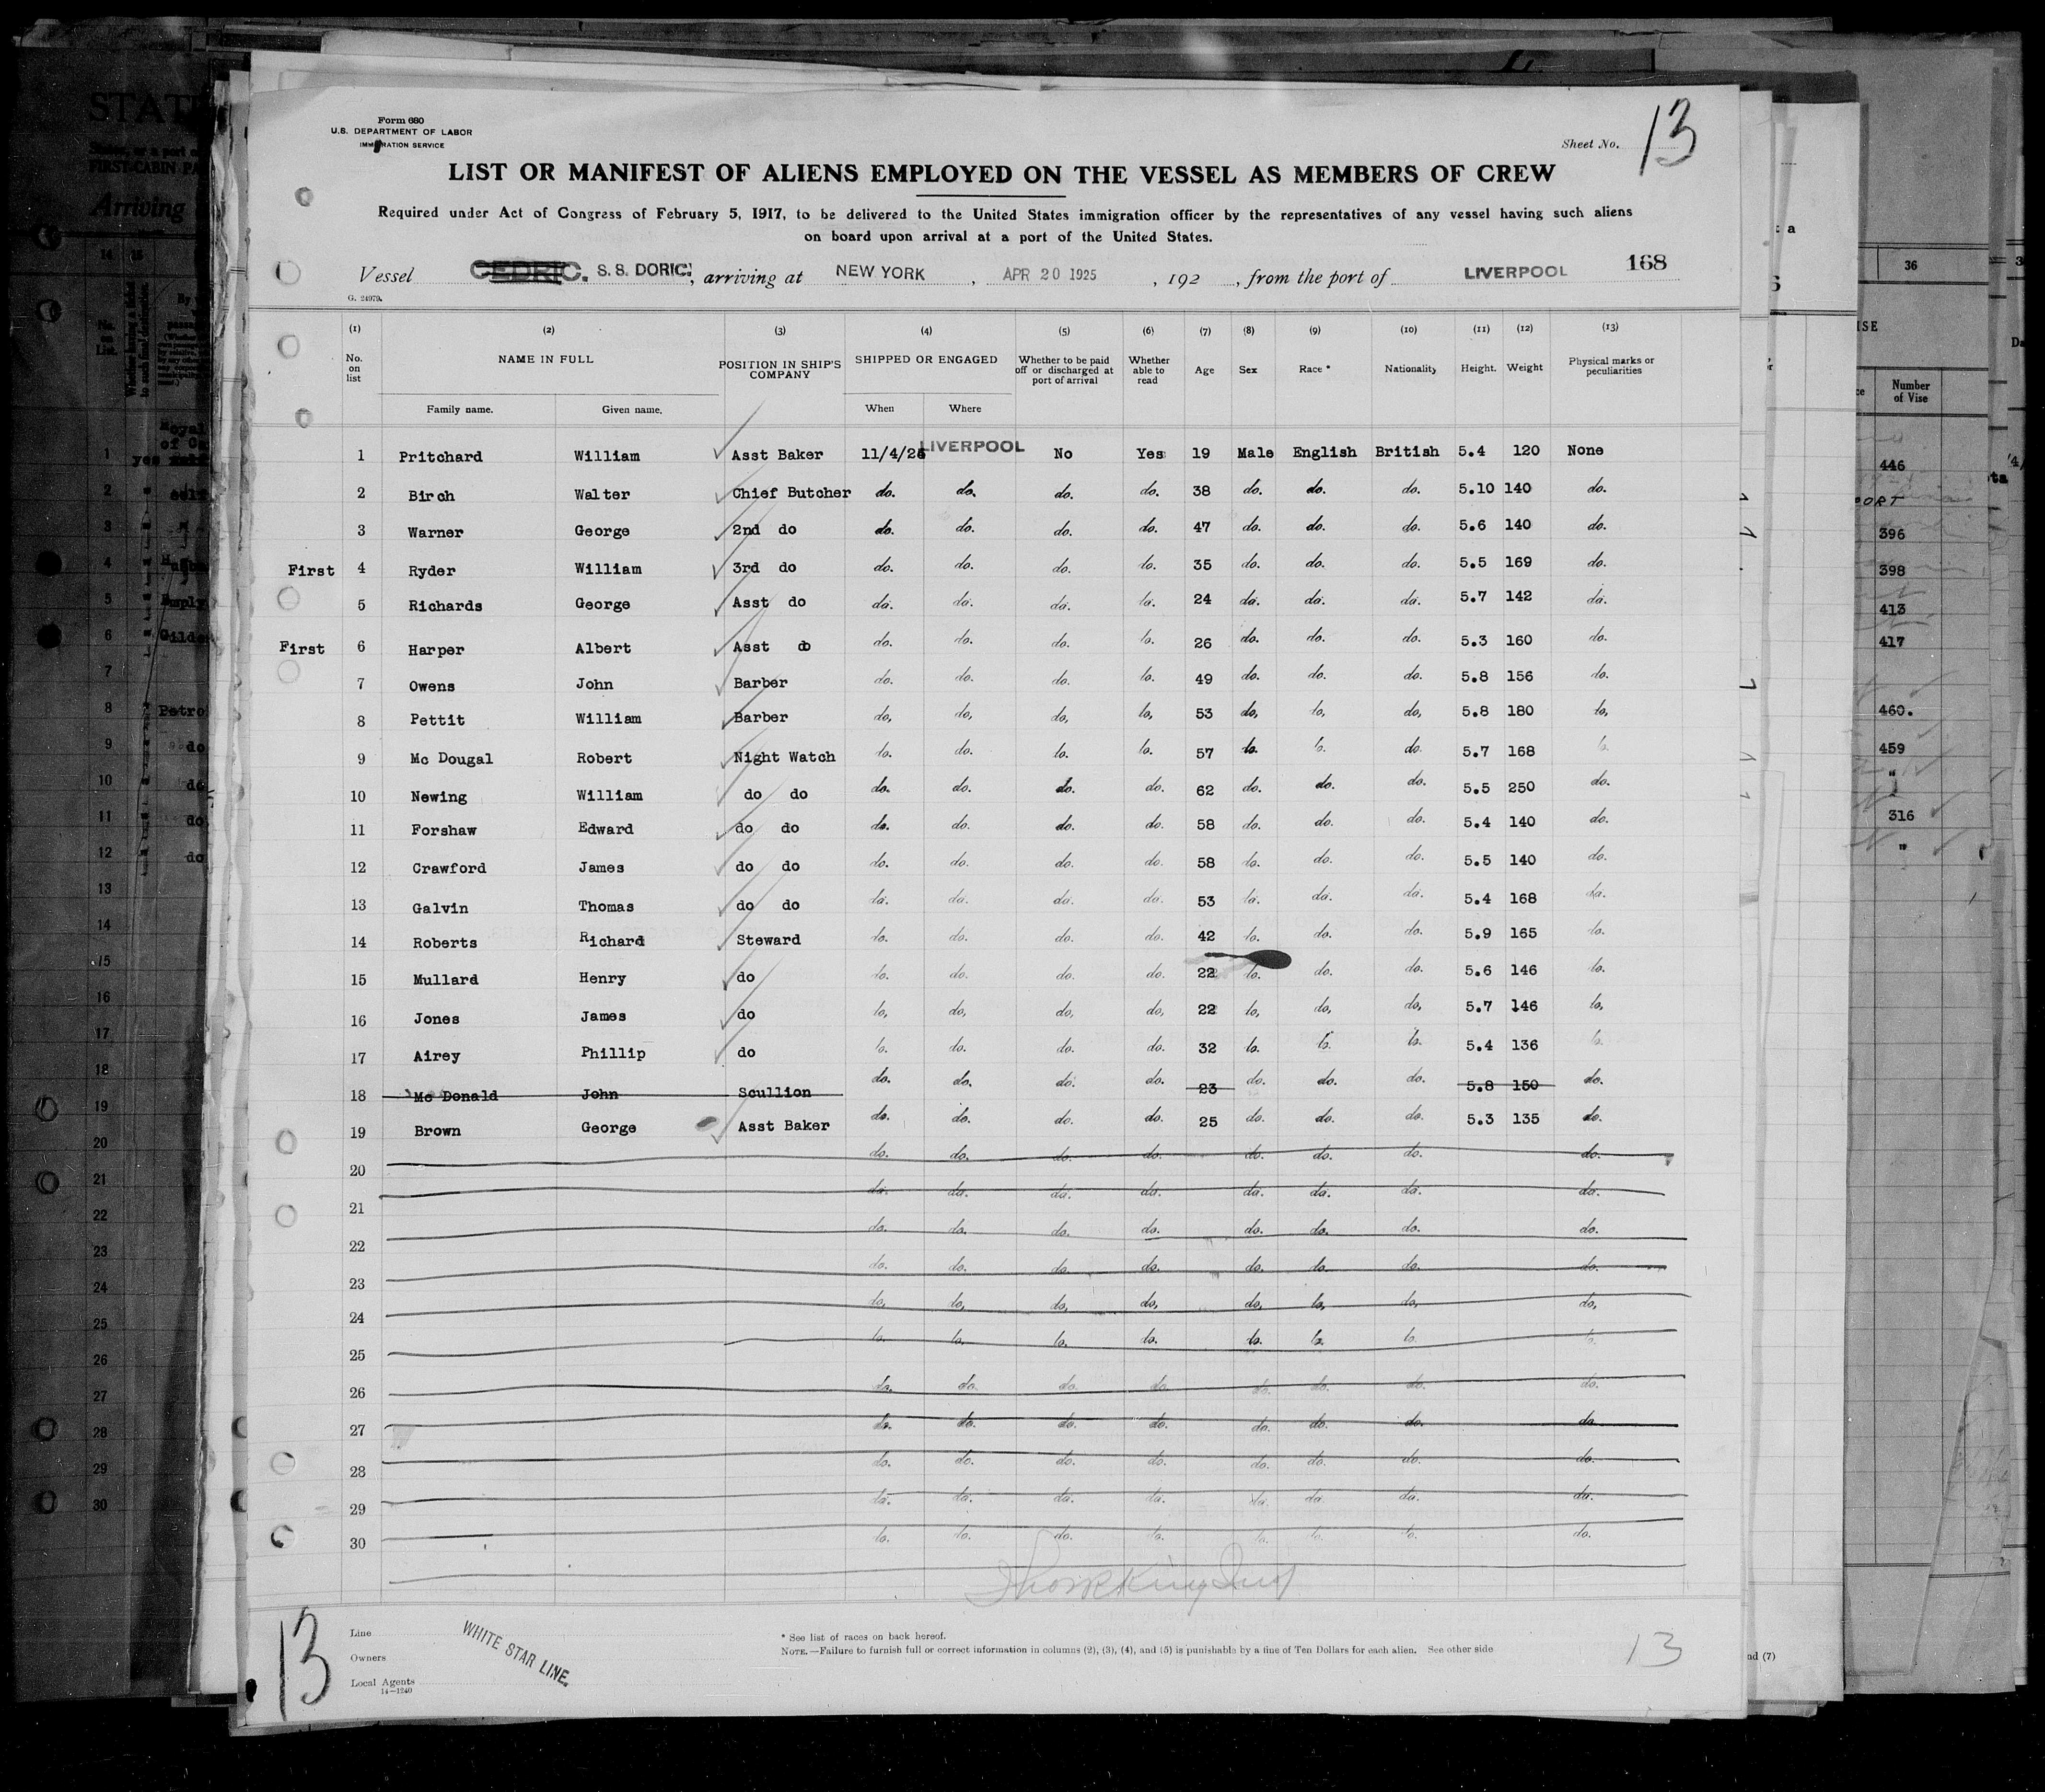 Form 680
U.S. DEPARTMENT OF LABOR
IMMIGRATION SERVICE
Sheet No. 13
LIST OR MANIFEST OF ALIENS EMPLOYED ON THE VESSEL AS MEMBERS OF CREW
Required under Act of Congress of February 5, 1917, to be delivered to the United States immigration officer by the representatives of any vessel having such aliens
on board upon arrival at a port of the United States.
168
Vessel CEDRIC. S. S. DORIC, arriving at NEW YORK, APR 20 1925, 192 , from the port of LIVERPOOL
G. 24979.
(1) (2) (3) (4) (5) (6) (7) (8) (9) (10) (11) (12) (13)
No. on list NAME IN FULL POSITION IN SHIP'S COMPANY SHIPPED OR ENGAGED Whether to be paid off or discharged at port of arrival Whether able to read Age Sex Race * Nationality Height. Weight Physical marks or peculiarities
Family name. Given name. When Where
1 Pritchard William Asst Baker 11/4/25 LIVERPOOL No Yes 19 Male English British 5.4 120 None
2 Birch Walter Chief Butcher do. do. do. do. 38 do. do. do. 5.10 140 do.
3 Warner George 2nd do do. do. do. do. 47 do. do. do. 5.6 140 do.
First 4 Ryder William 3rd do do. do. do. do. 35 do. do. do. 5.5 169 do.
5 Richards George Asst do do. do. do. do. 24 do. do. do. 5.7 142 do.
First 6 Harper Albert Asst do do. do. do. do. 26 do. do. do. 5.3 160 do.
7 Owens John Barber do. do. do. do. 49 do. do. do. 5.8 156 do.
8 Pettit William Barber do. do. do. do. 53 do. do. do. 5.8 180 do.
9 Mc Dougal Robert Night Watch do. do. do. do. 57 do. do. do. 5.7 168 do.
10 Newing William do do do. do. do. do. 62 do. do. do. 5.5 250 do.
11 Forshaw Edward do do do. do. do. do. 58 do. do. do. 5.4 140 do.
12 Crawford James do do do. do. do. do. 58 do. do. do. 5.5 140 do.
13 Galvin Thomas do do do. do. do. do. 53 do. do. do. 5.4 168 do.
14 Roberts Richard Steward do. do. do. do. 42 do. do. do. 5.9 165 do.
15 Mullard Henry do do. do. do. do. 22 do. do. do. 5.6 146 do.
16 Jones James do do. do. do. do. 22 do. do. do. 5.7 146 do.
17 Airey Phillip do do. do. do. do. 32 do. do. do. 5.4 136 do.
18 Mc Donald John Scullion do. do. do. do. 23 do. do. do. 5.8 150 do.
19 Brown George Asst Baker do. do. do. do. 25 do. do. do. 5.3 135 do.
20 do. do. do. do. do. do. do. do.
21 do. do. do. do. do. do. do. do.
22 do. do. do. do. do. do. do. do.
23 do. do. do. do. do. do. do. do.
24 do. do. do. do. do. do. do. do.
25 do. do. do. do. do. do. do. do.
26 do. do. do. do. do. do. do. do.
27 do. do. do. do. do. do. do. do.
28 do. do. do. do. do. do. do. do.
29 do. do. do. do. do. do. do. do.
30 do. do. do. do. do. do. do. do.
13
Line
Owners
Local Agents
14—1240
WHITE STAR LINE.
* See list of races on back hereof.
NOTE.—Failure to furnish full or correct information in columns (2), (3), (4), and (5) is punishable by a fine of Ten Dollars for each alien. See other side
13
STAT
FIRST-CABIN PA
Arriving
14 15
1
2
3
4
5
6
7
8
9
10
11
12
13
14
15
16
17
18
19
20
21
22
23
24
25
26
27
28
29
30
36
Number
of Vise
446
396
398
413
417
460.
459
"
316
"
nd (7)